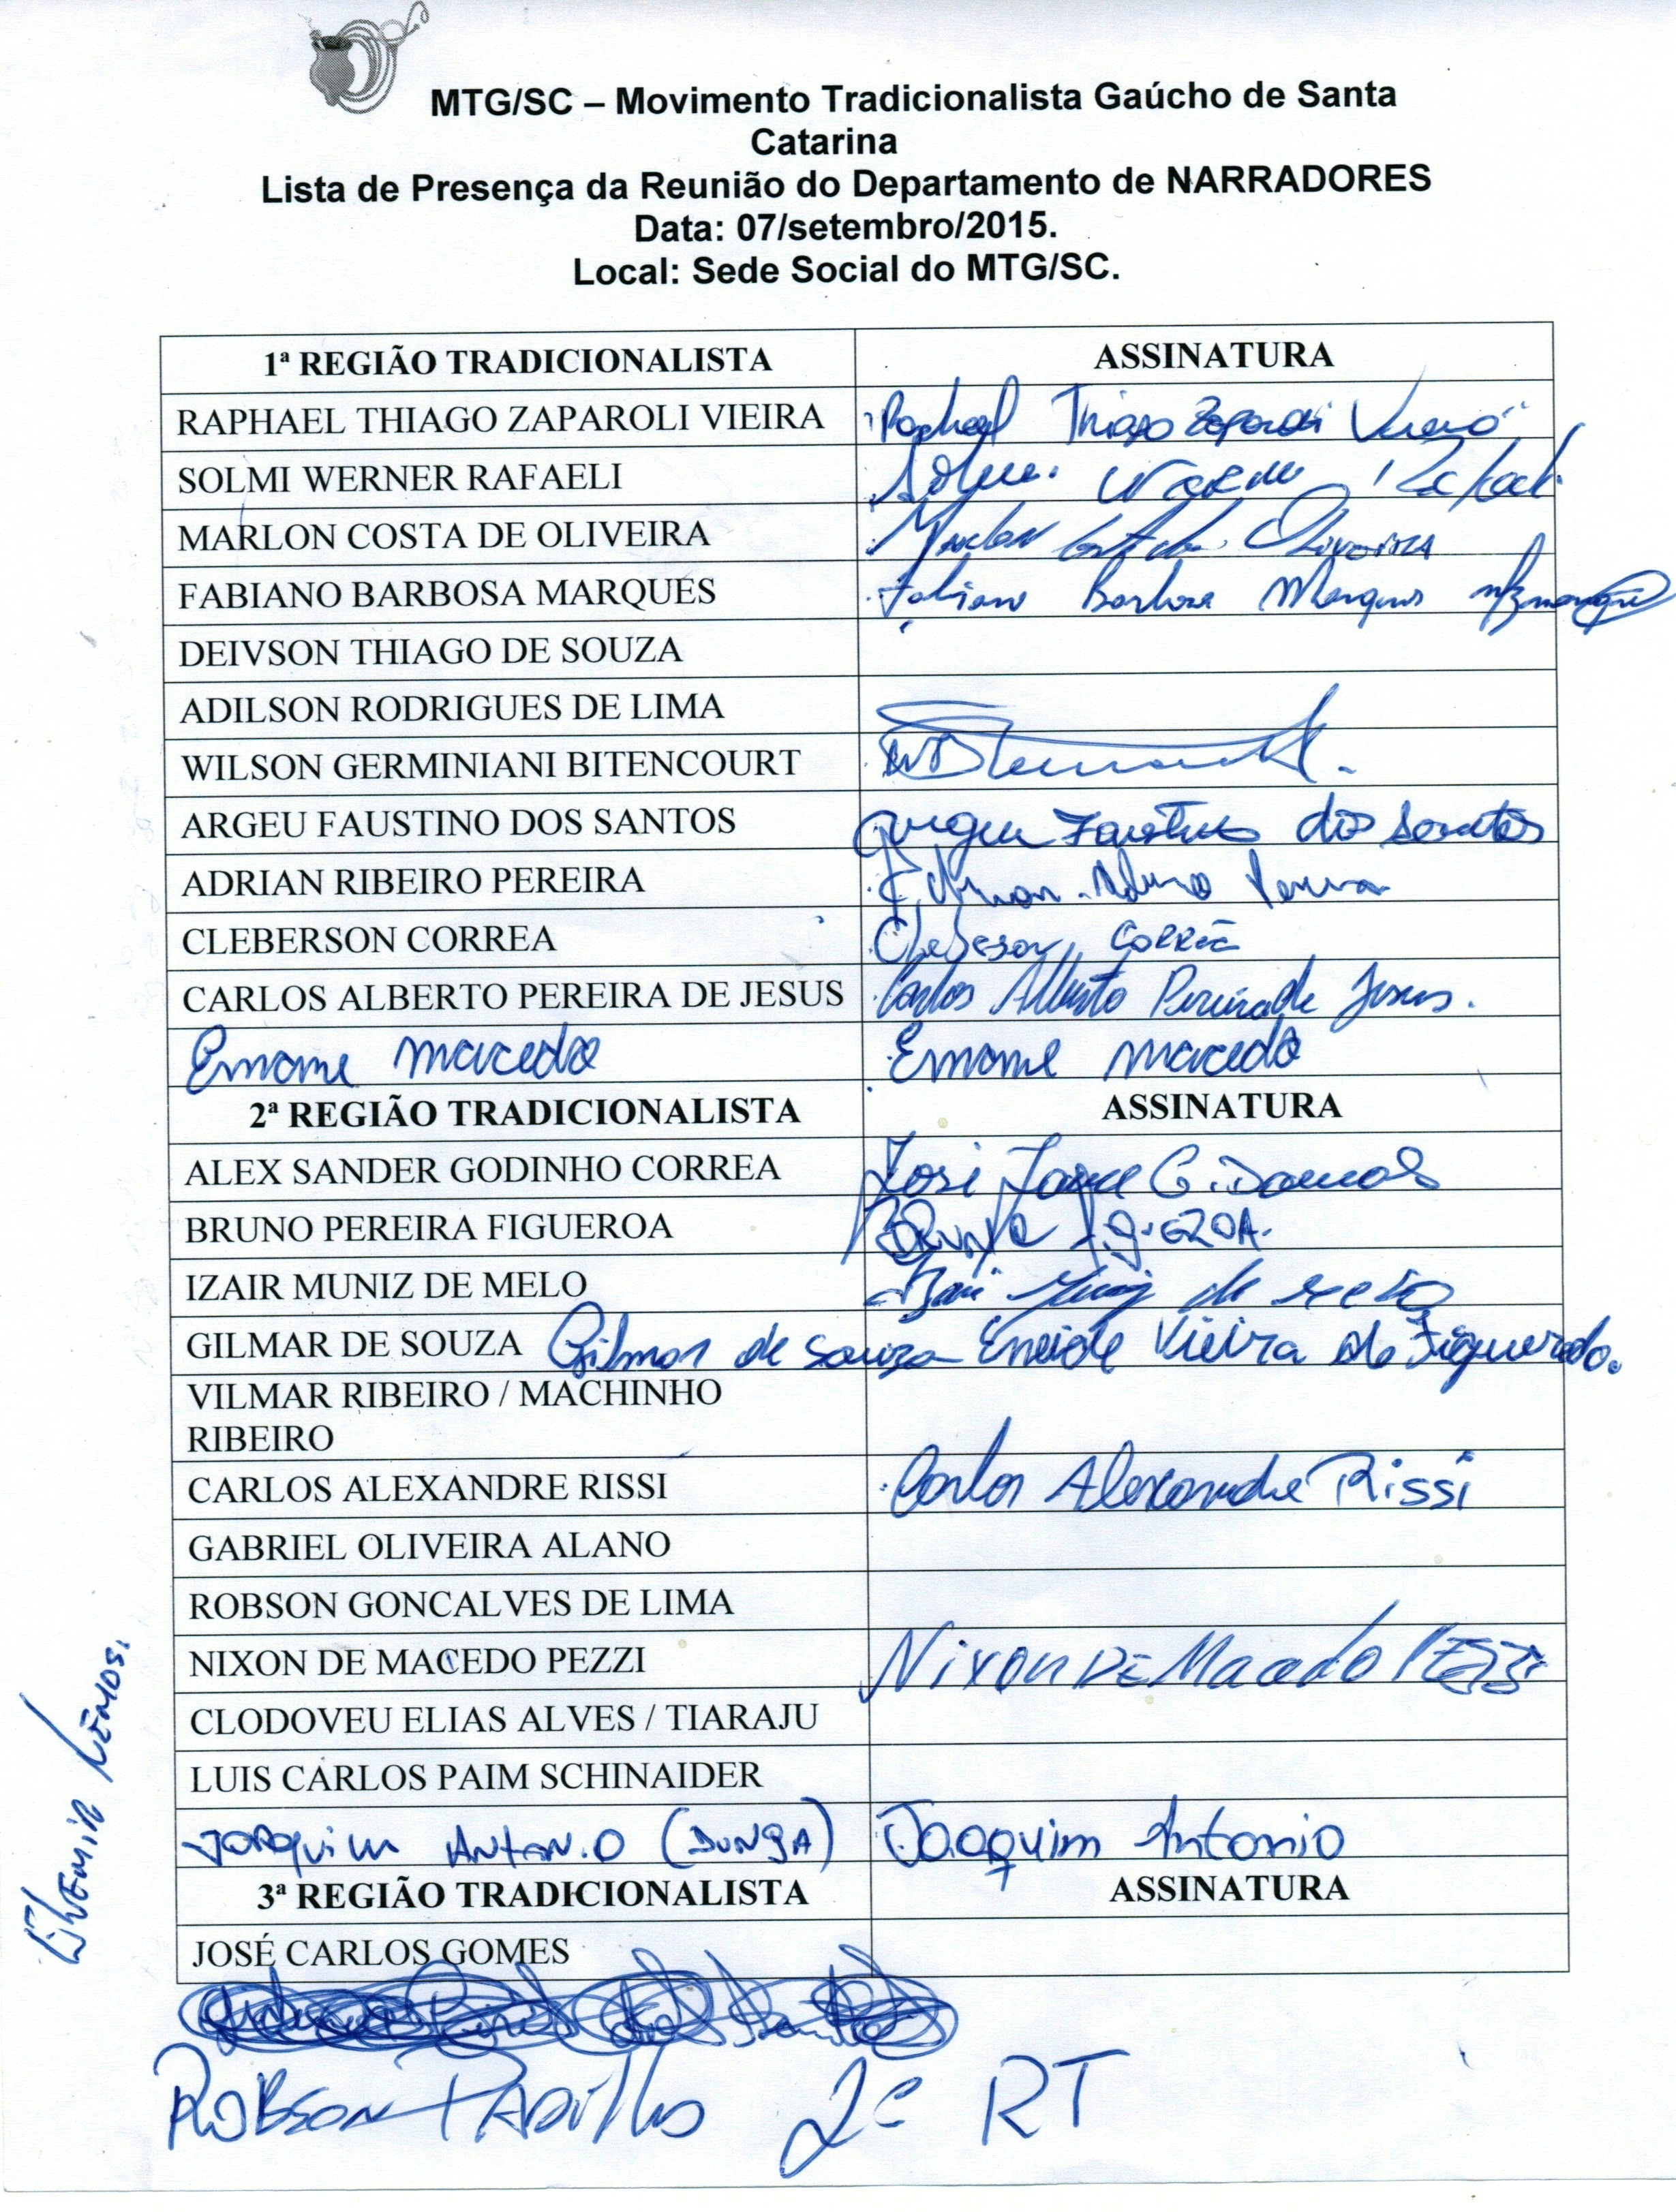 MTG/SC – Movimento Tradicionalista Gaúcho de Santa
Catarina
Lista de Presença da Reunião do Departamento de NARRADORES
Data: 07/setembro/2015.
Local: Sede Social do MTG/SC.
1ª REGIÃO TRADICIONALISTA ASSINATURA
RAPHAEL THIAGO ZAPAROLI VIEIRA Raphael Thiago Zaparoli Vieira
SOLMI WERNER RAFAELI Solmi Werner Rafaeli
MARLON COSTA DE OLIVEIRA Marlon Costa de Oliveira
FABIANO BARBOSA MARQUES Fabiano Barbosa Marques
DEIVSON THIAGO DE SOUZA
ADILSON RODRIGUES DE LIMA
WILSON GERMINIANI BITENCOURT
ARGEU FAUSTINO DOS SANTOS Argeu Faustino dos Santos
ADRIAN RIBEIRO PEREIRA Adrian Ribeiro Pereira
CLEBERSON CORREA Cleberson Correa
CARLOS ALBERTO PEREIRA DE JESUS Carlos Alberto Pereira de Jesus.
Macedo Macedo
2ª REGIÃO TRADICIONALISTA ASSINATURA
ALEX SANDER GODINHO CORREA
BRUNO PEREIRA FIGUEROA Bruno Figueroa.
IZAIR MUNIZ DE MELO Izair Muniz de Melo
GILMAR DE SOUZA Gilmar de Souza Eneide Vieira de Figueredo.
VILMAR RIBEIRO / MACHINHO
RIBEIRO
CARLOS ALEXANDRE RISSI Carlos Alexandre Rissi
GABRIEL OLIVEIRA ALANO
ROBSON GONCALVES DE LIMA
NIXON DE MACEDO PEZZI Nixon de Macedo Pezzi
CLODOVEU ELIAS ALVES / TIARAJU
LUIS CARLOS PAIM SCHINAIDER
JOAQUIM ANTONIO (DUNGA) Joaquim Antonio
3ª REGIÃO TRADICIONALISTA ASSINATURA
JOSÉ CARLOS GOMES
ROBSON PADILHA 2ª RT
LEMOS.